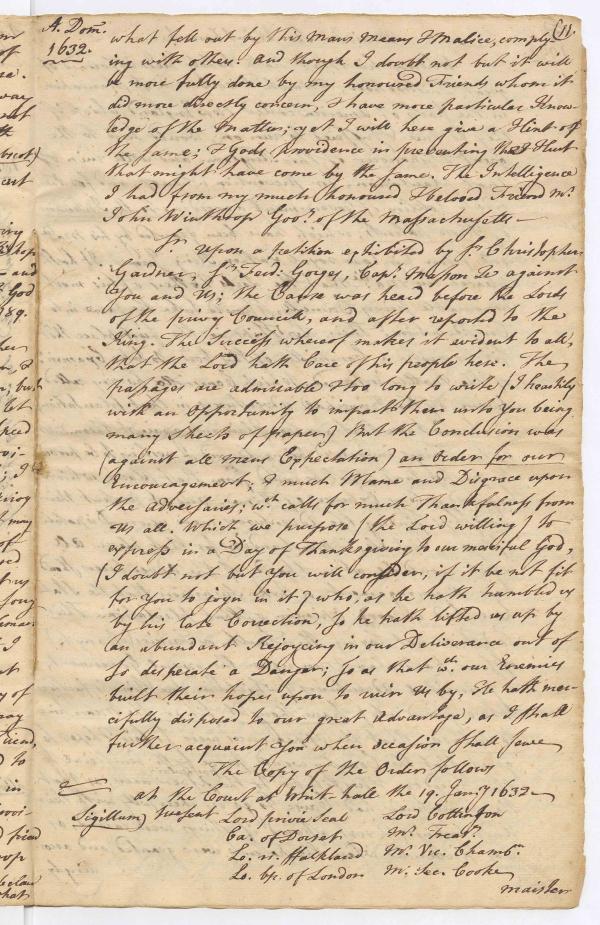 A. Dom.
1632.
(11.
what fell out by this mans means & malice, comply-
ing with others. And though I doubt not but it will
be more fully done by my honoured Friends whom it
did more directly concern, & have more particular Know-
ledge of the Matter; yet I will here give a Hint of
the same; & Gods Providence in preventing the Hurt
that might have come by the same. The Intelligence
I had from my much honoured & beloved Friend Mr.
John Winthrop Govr. of the Massachusetts—
Sr. Upon a petition exhibited by Sr. Christopher
Gardner, Sr. Ferd: Gorges, Capt. Masson &c against
You and Us; the Cause was heard before the Lords
of the privy Councill, and after reported to the
King. The Success whereof makes it evident to all,
that the Lord hath Care of his people here. The
passages are admirable & too long to write (I heartily
wish an Opportunity to impart them unto You being
many Sheets of paper) But the Conclusion was
(against all mens Expectation) an Order for our
Encouragement, & much Blame and Disgrace upon
the Adversaries; wch. calls for much Thankfulness from
us all. Which we purpose (the Lord willing) to
express in a Day of Thanksgiving to our merciful God,
(I doubt not but You will consider, if it be not fit
for You to joyn in it) who, as he hath humbled us
by his late Correction, so he hath lifted us up by
an abundant Rejoycing in our Deliverance out of
so desperate a Danger; so as that wch. our Enemies
built their hopes upon to ruin Us by, He hath mer-
cifully disposed to our great Advantage, as I shall
further acquaint You when Occasion shall serve
The Copy of the Order follows
At the Court at Whit hall the 19. Jany. 1632—
Sigillum) present Lord privie Seal Lord Cottinton
Ea. of Dorset Mr. Treasr.
Lo. vi. Falkland Mr. Vic. Chambn.
Lo. bp. of London Mr. Sec. Cooke
maister